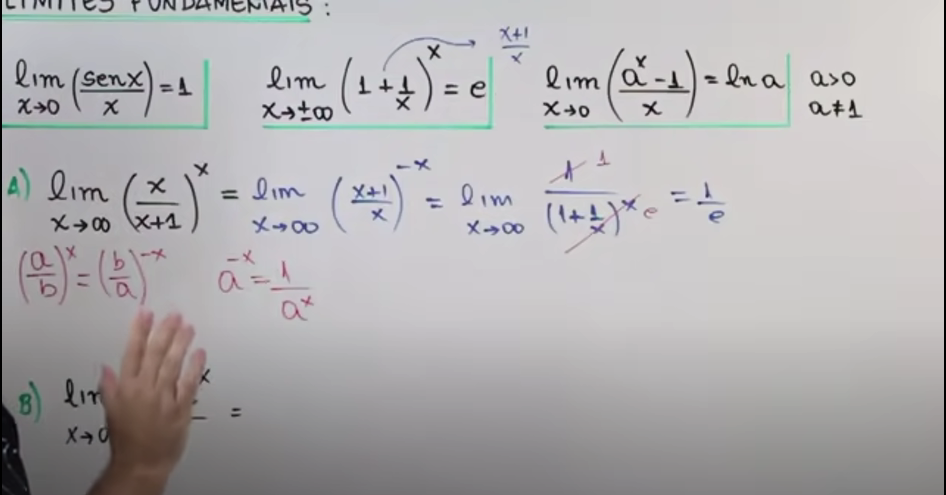 LIMITES FUNDAMENTAIS:
lim x→0 (senx/x) = 1
lim x→±∞ (1 + 1/x)^x = e
x+1/x
lim x→0 (a^x - 1/x) = ln a
a>0
a≠1
A) lim x→∞ (x/x+1)^x = lim x→∞ (x+1/x)^-x = lim x→∞ 1 1/(1+1/x)^x e = 1/e
(a/b)^x = (b/a)^-x
a^-x = 1/a^x
B) x
x→ =